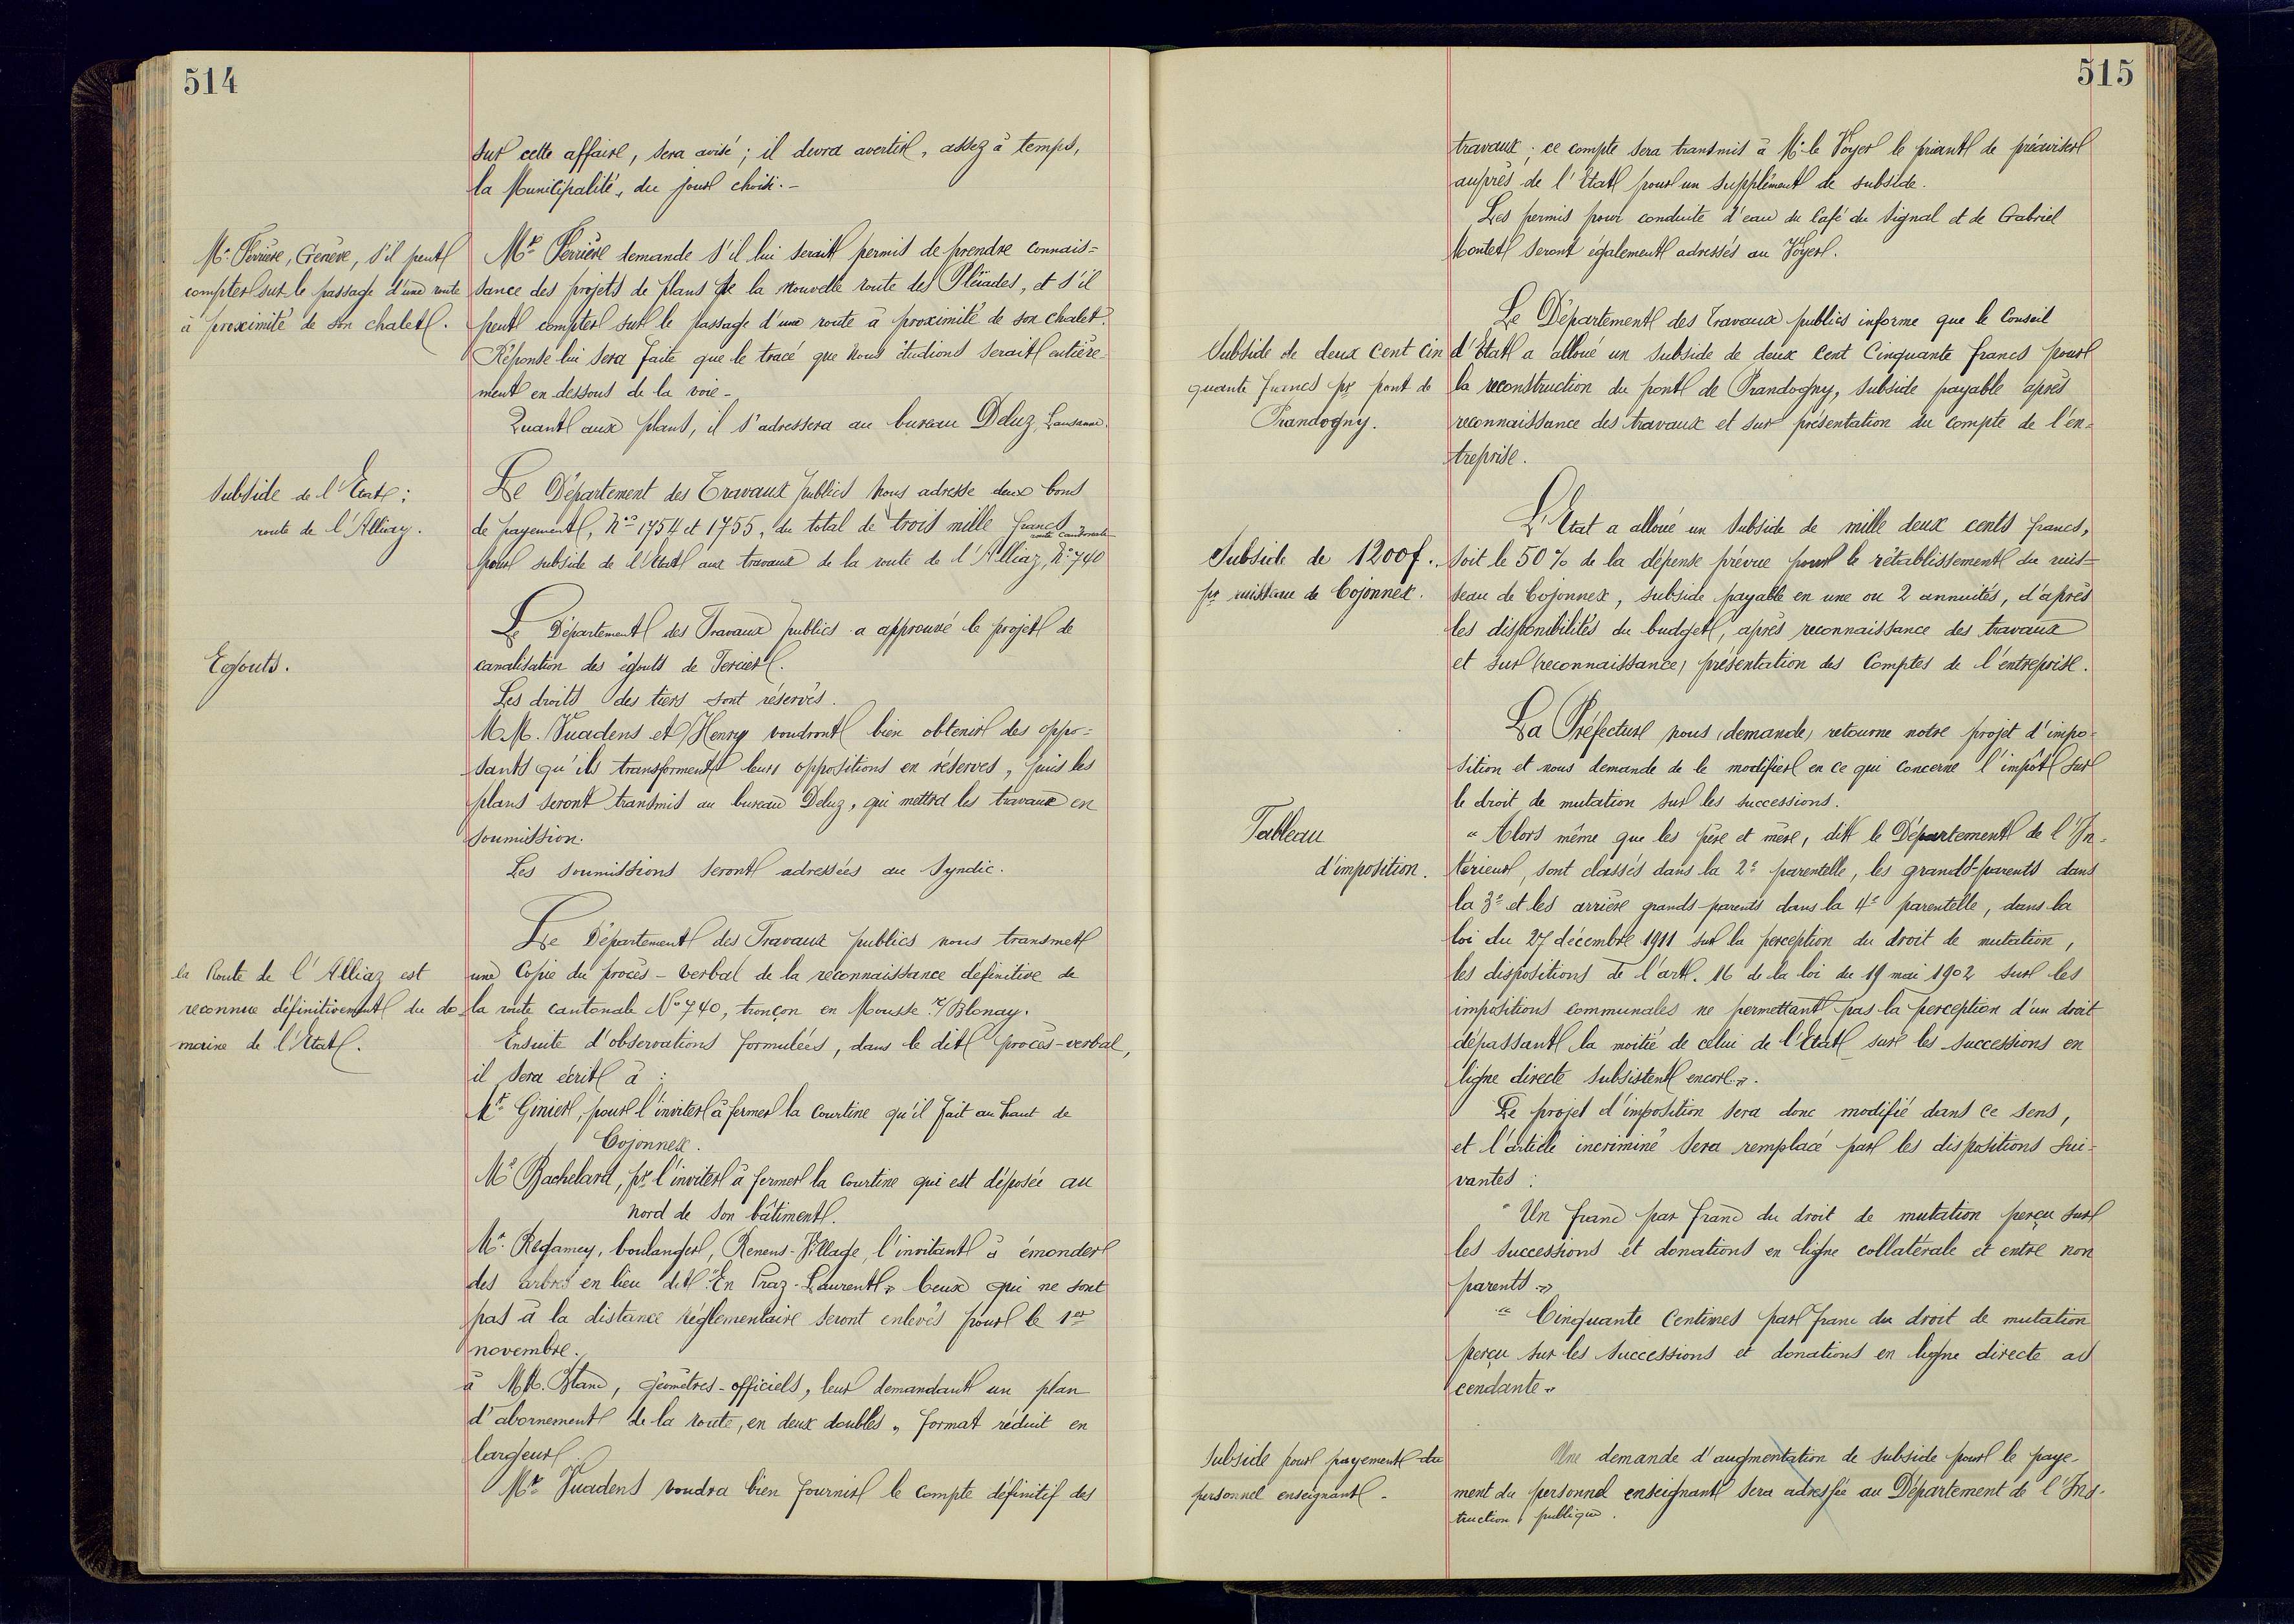 514
sur cette affaire, sera avisé; il devra avertir, assez à temps,
la Municipalité, du jour choisi.-
Mr. Perrière, Genève, s'il peut
compter sur le passage d'une route
à proximité de son chalet.
Mr. Perrière demande s'il lui serait permis de prendre connais=
sance des projets de plans de la nouvelle route des Pléïades, et s'il
peut compter sur le passage d'une route à proximité de son chalet.
Réponse lui sera faite que le tracé que nous étudions serait entière-
ment en dessous de la voie-
Quant aux plans, il s'adressera au bureau Deluz, Lausanne.
Subside de l'Etat:
route de l'Alliaz.
Le Département des Travaux publics nous adresse deux bons
de payement, Nos 1754 et 1755, du total de trois mille francs
route cantonale
pour subside de l'Etat aux travaux de la route de l'Alliaz, No 740
Egouts.
Le Département des Travaux publics a approuvé le projet de
canalisation des égouts de Tercier.
Les droits des tiers sont réservés.
M.M. Vuadens et Henry voudront bien obtenir des oppo=
sants qu'ils transforment leurs oppositions en réserves, puis les
plans seront transmis au bureau Deluz, qui mettra les travaux en
soumission.
Les soumissions seront adressées au Syndic.
la Route de l'Alliaz est
reconnue définitivement du do
maine de l'Etat.
Le Département des Travaux publics nous transmet
une Copie du procès-verbal de la reconnaissance définitive de
la route cantonale No 740, tronçon en Mousse s/Blonay.
Ensuite d'observations formulées, dans le dit procès-verbal,
il sera écrit à :
Mr. Ginier, pour l'inviter à fermer la Courtine qu'il fait au haut de
Cojonnex.
Mr Bachelard, pr l'inviter à fermer la Courtine qui est déposée au
nord de son bâtiment.
Mr. Regamey, boulanger, Renens-Village, l'invitant à émonder
des arbres en lieu dit "En Praz-Laurent" Ceux qui ne sont
pas à la distance réglementaire seront enlevés pour le 1er
novembre.
à MM. Blanc, géomètres-officiels, leur demandant un plan
d'abornement de la route, en deux doubles, format réduit en
largeur
Mr. Vuadens voudra bien fournir le compte définitif des
515
travaux; ce compte sera transmis à Mr le Voyer le priant de préaviser
auprès de l'Etat pour un supplément de subside.
Les permis pour conduite d'eau du Café du Signal et de Gabriel
Montet seront également adressés au Voyer.
Subside de deux cent cin
quante francs pr pont de
Prandogny.
Le Département des Travaux publics informe que le Conseil
d'Etat a alloué un subside de deux Cent Cinquante francs pour
la reconstruction du pont de Prandogny, subside payable après
reconnaissance des travaux et sur présentation du compte de l'en=
treprise.
Subside de 1200f.
pr ruisseau de Cojonnex.
L'Etat a alloué un subside de mille deux cents francs,
soit le 50% de la dépense prévue pour le rétablissement du ruis=
seau de Cojonnex, subside payable en une ou 2 annuités, d'après
les disponibilités du budget, après reconnaissance des travaux
et sur (reconnaissance) présentation des Comptes de l'entreprise.
Tableau
d'imposition.
La Préfecture nous (demande) retourne notre projet d'impo-
sition et nous demande de le modifier en ce qui concerne l'impôt sur
le droit de mutation sur les successions.
"Alors même que les père et mère, dit le Département de l'In-
térieur, sont classés dans la 2e parentelle, les grands-parents dans
la 3e et les arrière grands-parents dans la 4e parentelle, dans la
loi du 27 décembre 1911 sur la perception du droit de mutation,
les dispositions de l'art. 16 de la loi du 19 mai 1902 sur les
impositions communales ne permettant pas la perception d'un droit
dépassant la moitié de celui de l'Etat sur les successions en
ligne directe subsistent encore".
Le projet d'imposition sera donc modifié dans ce sens,
et l'article incriminé sera remplacé par les dispositions sui=
vantes :
"Un franc par franc du droit de mutation perçu sur
les successions et donations en ligne collatérale et entre non
parents"
"Cinquante Centimes par franc du droit de mutation
perçu sur les successions et donations en ligne directe as
cendante"
Subside pour payement du
personnel enseignant-
Une demande d'augmentation de subside pour le paye-
ment du personnel enseignant sera adressée au Département de l'Ins-
truction publique.